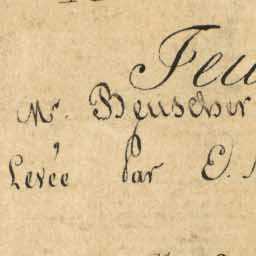 Feu
Mr. Beuscher
Levée par E.